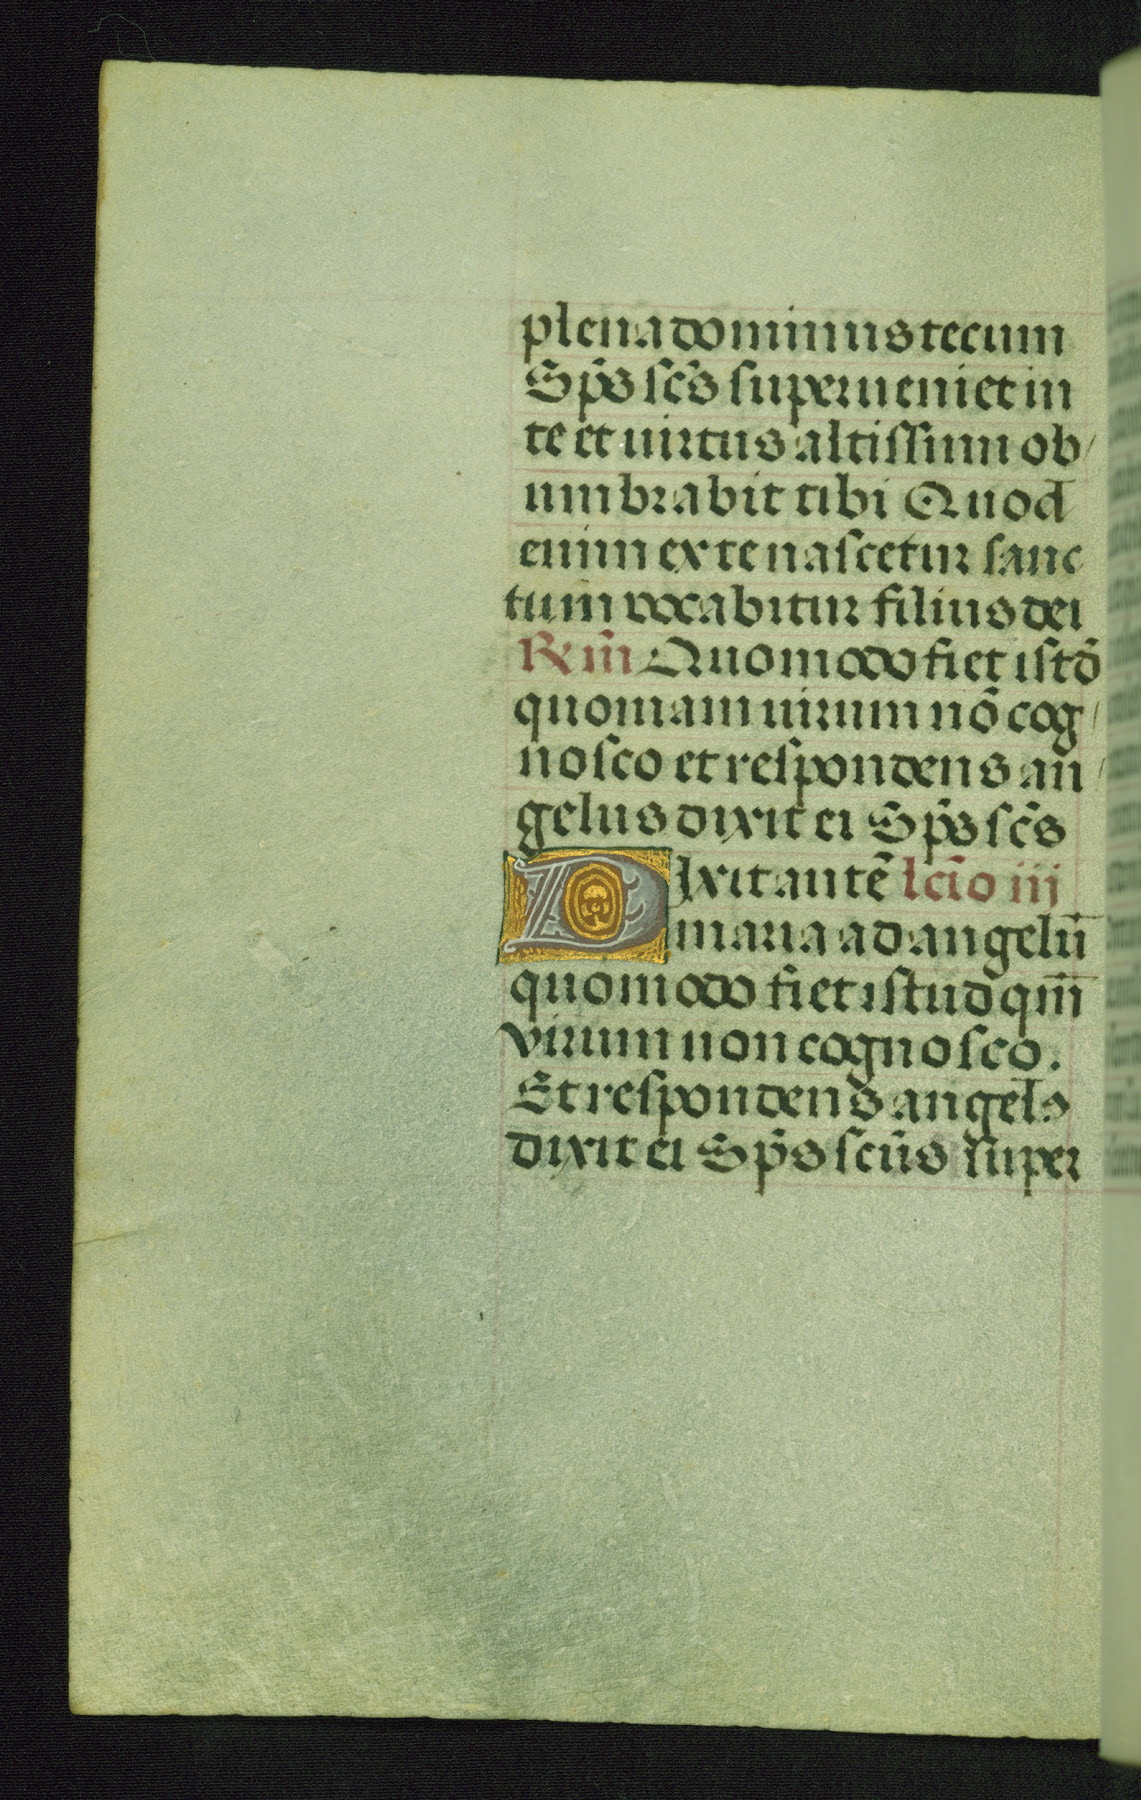 plena dominus tecum
Sp̄s sc̄s superueniet in
te et uirtus altissimi ob/
umbrabit tibi Quod
enim ex te nascetur sanc
tum vocabitur filius dei
R̸m̄ Quomodo fiet istđ
quoniam uirum nō cog/
nosco et respondens an/
gelus dixit ei Sp̄s sc̄s
Dixit autē lc̄io iij
maria ad angelū
quomodo fiet istud qm̄
virum non cognosco.
Et respondens angels
dixit ei Sp̄s scūs super